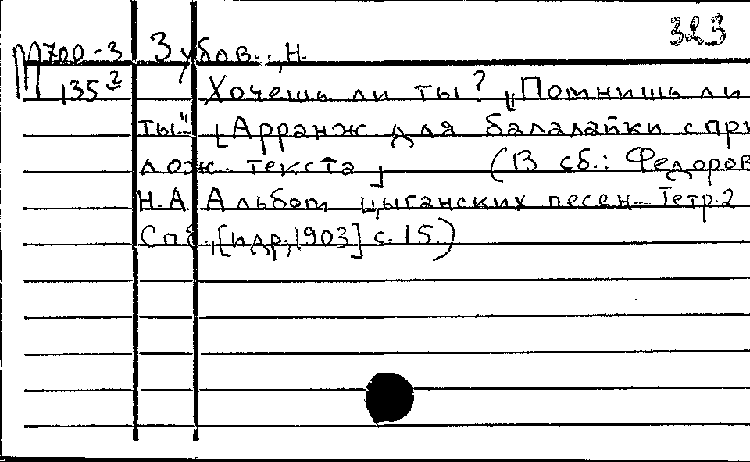 323
М700-3 Зубов, Н.
135² Хочешь ли ты? „Помнишь ли
ты" [Арранж. для балалайки с при
лож. текста] (В сб.: Федоров
Н.А. Альбом цыганских песен. Тетр.2
Спб., [ндр,1903] с. 15.)